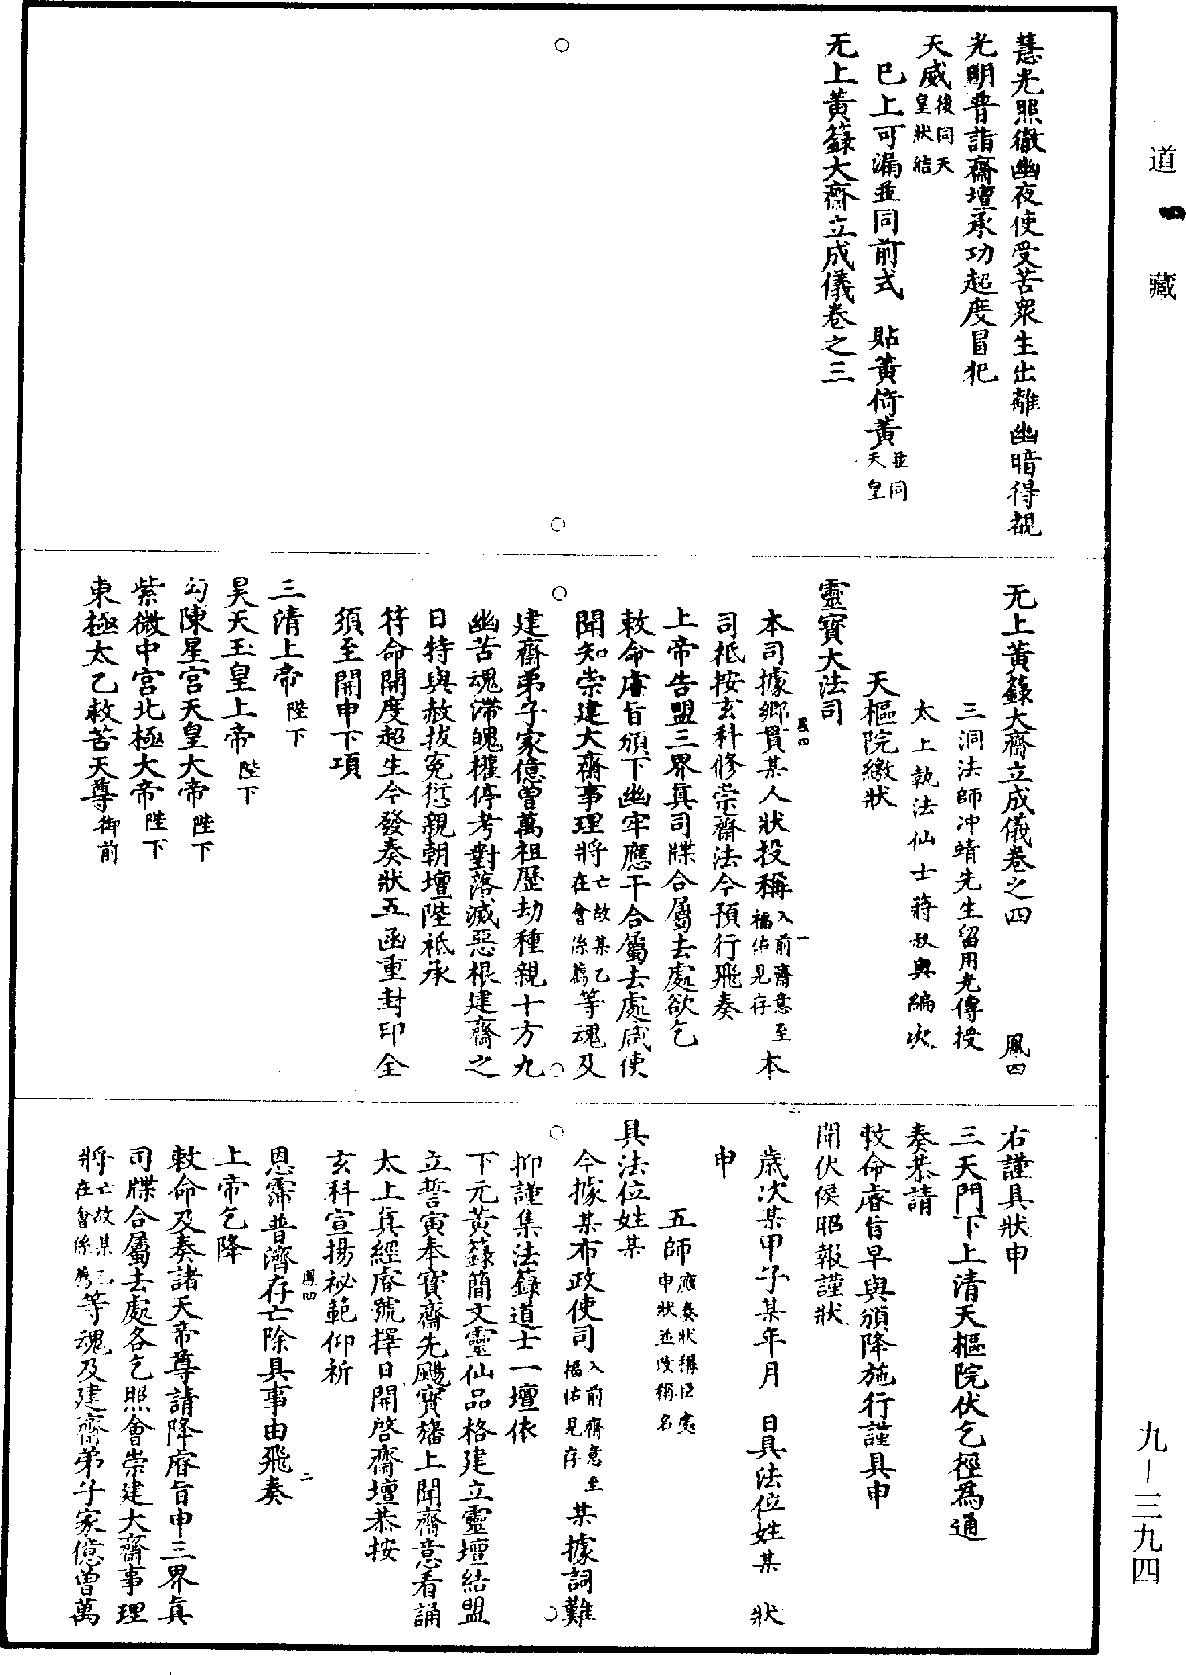 道藏
慧光照徹幽夜使受苦衆生出離幽暗得覩
光明普詣齋壇承功超度冒犯
天威後同天皇狀結
已上可漏並同前式　貼黃倚黃並同天皇
无上黃籙大齋立成儀卷之三
无上黃籙大齋立成儀卷之四　鳳四
三洞法師冲靖先生留用光傳授
太上執法仙士蔣叔輿編次
天樞院繳狀
靈寶大法司
本司據鄉貫某人狀投稱入前齋意至福佑見存本
鳳四　一
司祇按玄科修崇齋法今預行飛奏
上帝告盟三界真司牒合屬去處欲乞
敕命睿旨頒下幽牢應干合屬去處咸使
聞知崇建大齋事理將亡故某乙在會係薦等魂及
建齋弟子家億曾萬祖歷劫種親十方九
幽苦魂滯魄權停考對落滅惡根建齋之
日特與赦拔冤愆親朝壇陛祇承
符命開度超生今發奏狀五函重封印全
須至開申下項
三清上帝陛下
昊天玉皇上帝陛下
勾陳星宮天皇大帝陛下
紫微中宮北極大帝陛下
東極太乙救苦天尊御前
右謹具狀申
三天門下上清天樞院伏乞徑為通
奏恭請
敕命睿旨早與頒降施行謹具申
聞伏候昭報謹狀
歲次某甲子某年月　日具法位姓某　狀
申
五師應奏狀稱臣處申狀並改稱名
具法位姓某
今據某布政使司入前齋意至福佑見存某據詞難
抑謹集法籙道士一壇依
下元黃籙簡文靈仙品格建立靈壇結盟
立誓寅奉寶齋先颺寶旛上聞齋意看誦
太上真經睿號擇日開啓齋壇恭按
玄科宣揚祕範仰祈
恩霈普濟存亡除具事由飛奏
鳳四　二
上帝乞降
敕命及奏諸天帝尊請降睿旨申三界真
司牒合屬去處各乞照會崇建大齋事理
將亡故某乙在會係薦等魂及建齋弟子家億曾萬
九－三九四